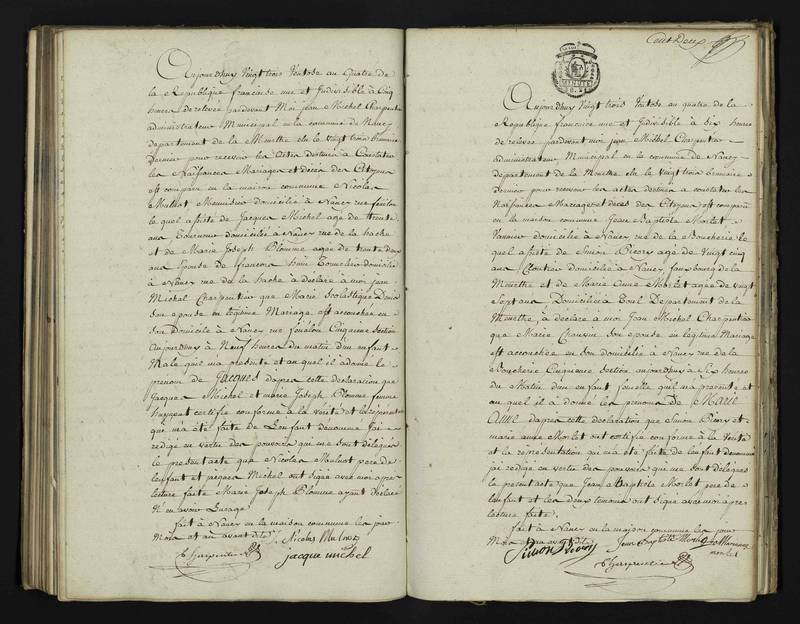 Aujourdhuy Vingt trois Ventose an Quatre de
la République françoise une et Indivisible à Cinq
heures de relevée pardevant Moi jean Michel Charpentier
administrateur Municipal en la commune de Nancy
departement de la Meurthe élu le vingt trois Brumaire
Dernier pour recevoir les actes destinés à Constater
les Naissances Mariages et décès des Citoyens
est comparu en la maison commune Nicolas
Mulnot Menuisier domicilié à Nancy rue fénélon
le quel assisté de Jacques Michel agé de trente
ans, Cordonnier domicilié à Nancy rue de la hache
et de Marie Joseph Blomme agée de trente deux
ans Epouse de françois domicilié
à Nancy rue de la hache à déclaré à moi jean
Michel Charpentier que Marie Scolastique
son épouse en légitime Mariage, est accouchée en
son Domicile à Nancy rue fénélon Cinquieme Section
aujourdhuy à Neuf heures du matin d'un enfant
Male qu'il m'a présenté et au quel il a donné le
prenom de Jacques d'apres cette déclaration que
Jacques Michel et marie Joseph Blomme femme
ont certifié conforme à la vérité et la representation
qui m'a été faite de L'enfant dénommé J'ai
rédigé en vertu des pouvoirs qui me sont délégués
le présent acte que Nicolas Mulnot pere de
l'enfant et jacques Michel ont signé avec moi apres
lecture faite Marie Joseph Blomme ayant déclaré
N'en avoir L'usage
fait à Nancy en la maison commune les jour
Mois et an avant dits Nicolas Mulnot
Charpentier jacque michel
Cent Deux
Aujourdhuy Vingt trois Ventose an quatre de la
République françoise une et Indivisible à Six heures
de relevée pardevant moi jean Michel Charpentier
administrateur Municipal en la commune de Nancy
departement de la Meurthe élu le vingt trois Brumaire
dernier pour recevoir les actes destinés à constater les
Naissances Mariages et décès des Citoyens est comparu
en la maison commune Jean Baptiste Morlet
Vannier domicilié à Nancy rue de la Boucherie le
quel assisté de Simon Pierry agé de Vingt cinq
ans Cloutier Domicilié à Nancy fauxbourg de la
Meurthe et de Marie Anne Morlet agée de vingt
Sept ans Domiciliée à Toul Département de la
Meurthe, à déclaré a moi Jean Michel Charpentier
que Marie Chausin son épouse en légitime Mariage
est accouchée en son domicile à Nancy rue de la
Boucherie Cinquieme Section aujourdhuy à Six heures
du Matin d'un enfant femelle qu'il m'a présenté et
au quel il a donné les prenoms de Marie
Anne d'après cette déclaration que Simon Pierry et
marie anne Morlet ont certifié conforme à la Vérité
et la représentation qui m'a été faite de l'enfant dénommé
j'ai rédigé en vertu des pouvoirs qui me sont délégués
le présent acte que Jean Baptiste Morlet pere de
l'enfant et les deux temoins ont signé avec moi après
lecture faite.
fait à Nancy en la maison commune les jour
Mois et an avant dits Jean Baptiste Morlet Marianne
Simon Pierry morlet
Charpentier